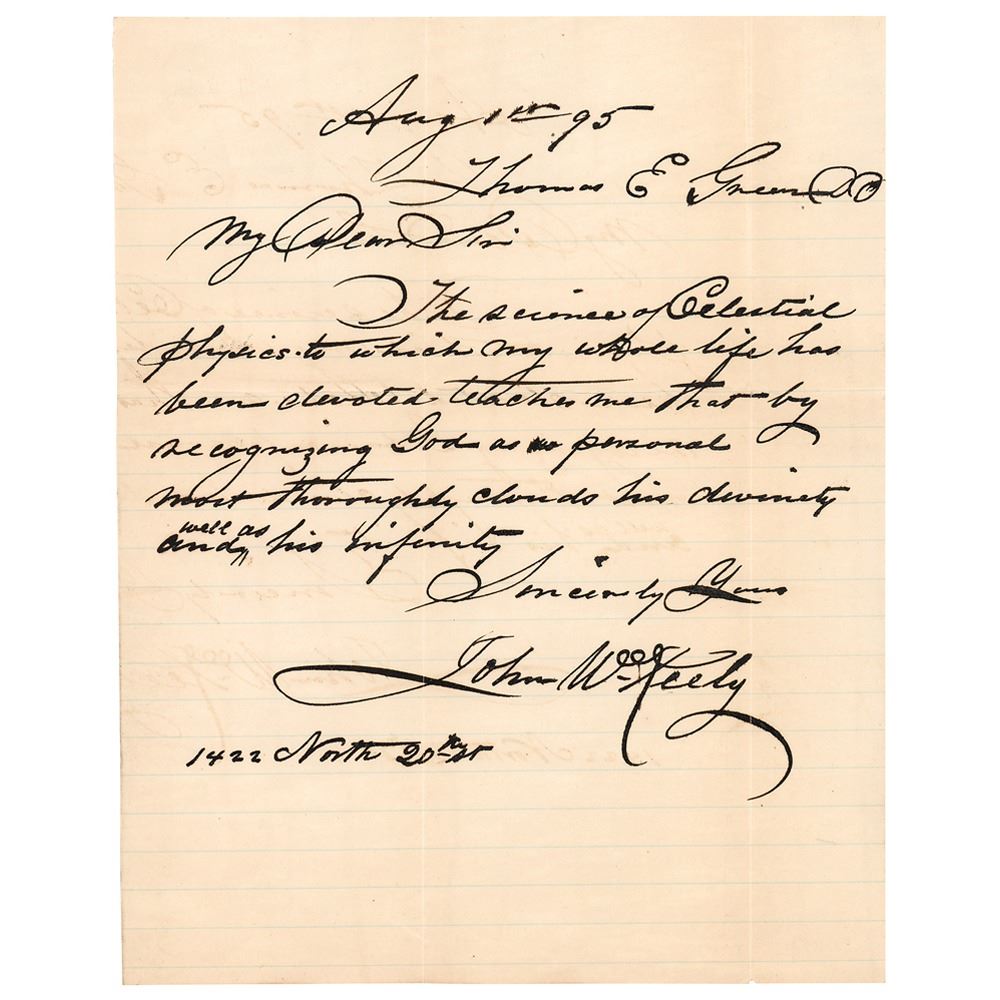 Aug 1st 95
Thomas E Green DD
My Dear Sir
The science of Celestial
physics to which my whole life has
been devoted teaches me that by
recognizing God as personal
most thoroughly clouds his divinety
well as
and his infinity
Sincerely Yours
John W. Keely
1422 North 20th st